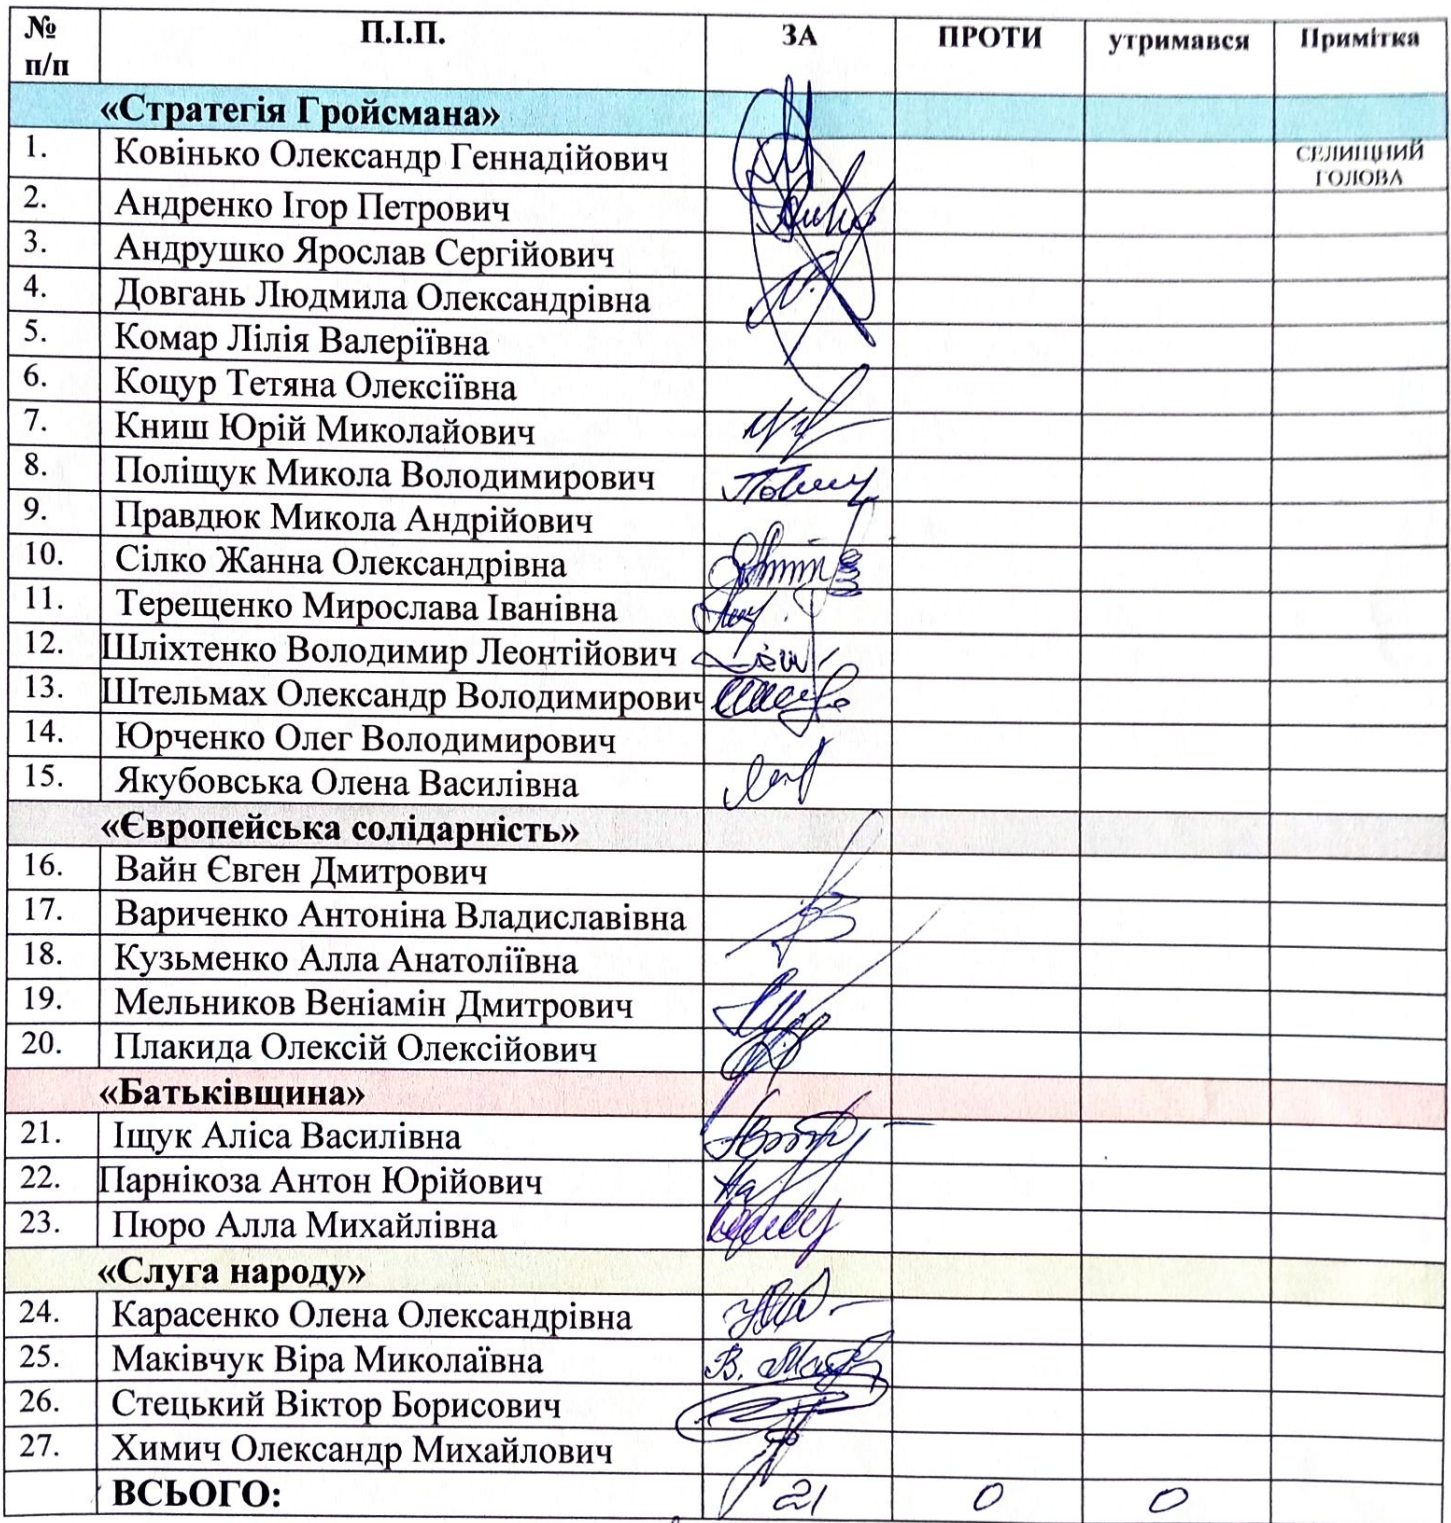 № п/п П.І.П. ЗА ПРОТИ утримався Примітка
«Стратегія Гройсмана»
1. Ковінько Олександр Геннадійович СЕЛИЩНИЙ ГОЛОВА
2. Андренко Ігор Петрович
3. Андрушко Ярослав Сергійович
4. Довгань Людмила Олександрівна
5. Комар Лілія Валеріївна
6. Коцур Тетяна Олексіївна
7. Книш Юрій Миколайович
8. Поліщук Микола Володимирович
9. Правдюк Микола Андрійович
10. Сілко Жанна Олександрівна
11. Терещенко Мирослава Іванівна
12. Шліхтенко Володимир Леонтійович
13. Штельмах Олександр Володимирович
14. Юрченко Олег Володимирович
15. Якубовська Олена Василівна
«Європейська солідарність»
16. Вайн Євген Дмитрович
17. Вариченко Антоніна Владиславівна
18. Кузьменко Алла Анатоліївна
19. Мельников Веніамін Дмитрович
20. Плакида Олексій Олексійович
«Батьківщина»
21. Іщук Аліса Василівна
22. Парнікоза Антон Юрійович
23. Пюро Алла Михайлівна
«Слуга народу»
24. Карасенко Олена Олександрівна
25. Маківчук Віра Миколаївна
26. Стецький Віктор Борисович
27. Химич Олександр Михайлович
ВСЬОГО: 21 0 0